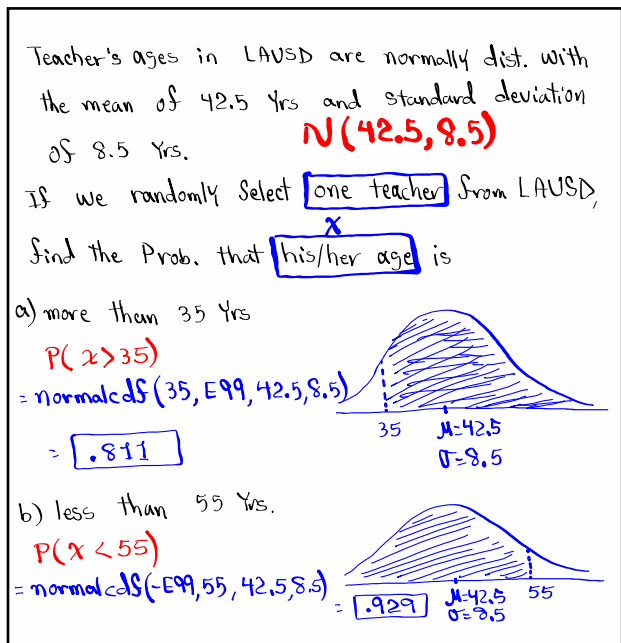 Teacher's ages in LAUSD are normally dist. with
the mean of 42.5 Yrs and standard deviation
of 8.5 Yrs.
N(42.5,8.5)
If we randomly Select one teacher from LAUSD,
x
find the Prob. that his/her age is
a) more than 35 Yrs
P(x>35)
= normalcdf(35, E99, 42.5, 8.5)
= .811
35 μ=42.5
σ=8.5
b) less than 55 Yrs.
P(x<55)
= normalcdf(-E99, 55, 42.5, 8.5)
= .929
μ=42.5 55
σ=8.5